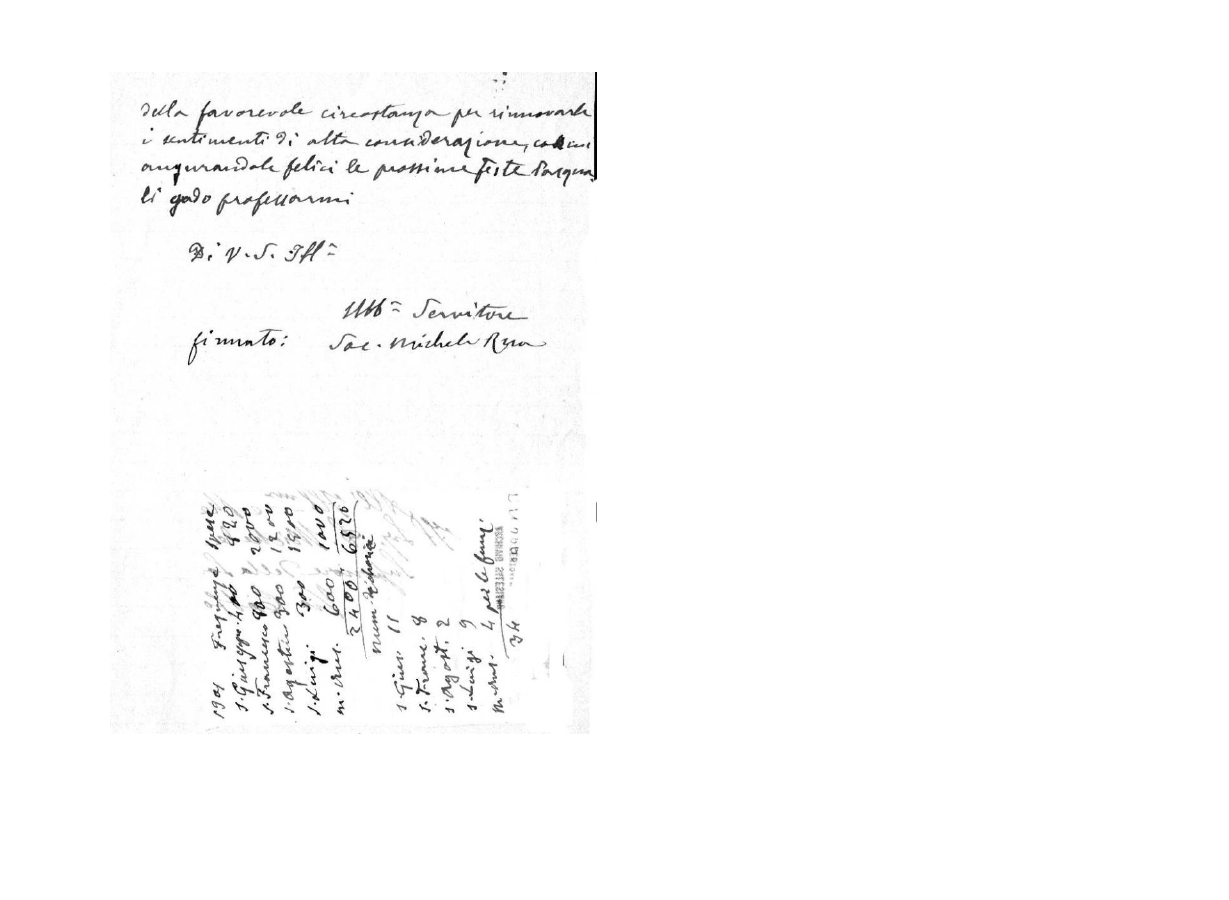 della favorevole circostanza per rinnovarle
i sentimenti di alta considerazione, con cui
augurandole felici le prossime feste Pasqua
li godo professarmi
Di V. S. Ill=
Servitore
firmato: Sac. Michele Rua
1901 Frequenze Spese
S. Giuseppe. 400 820
S. Francesco 800 2000
S. Agostino 300 1200
S. Luigi 300 1500
M. Aus. 600 1000
2400 6520
num. di chierici
S. Gius. 11
S. Franc. 8
S. Agost. 2
S. Luigi 9
M. Aus. 4 per le funz.
34
ARCHIVIO SALESIANO